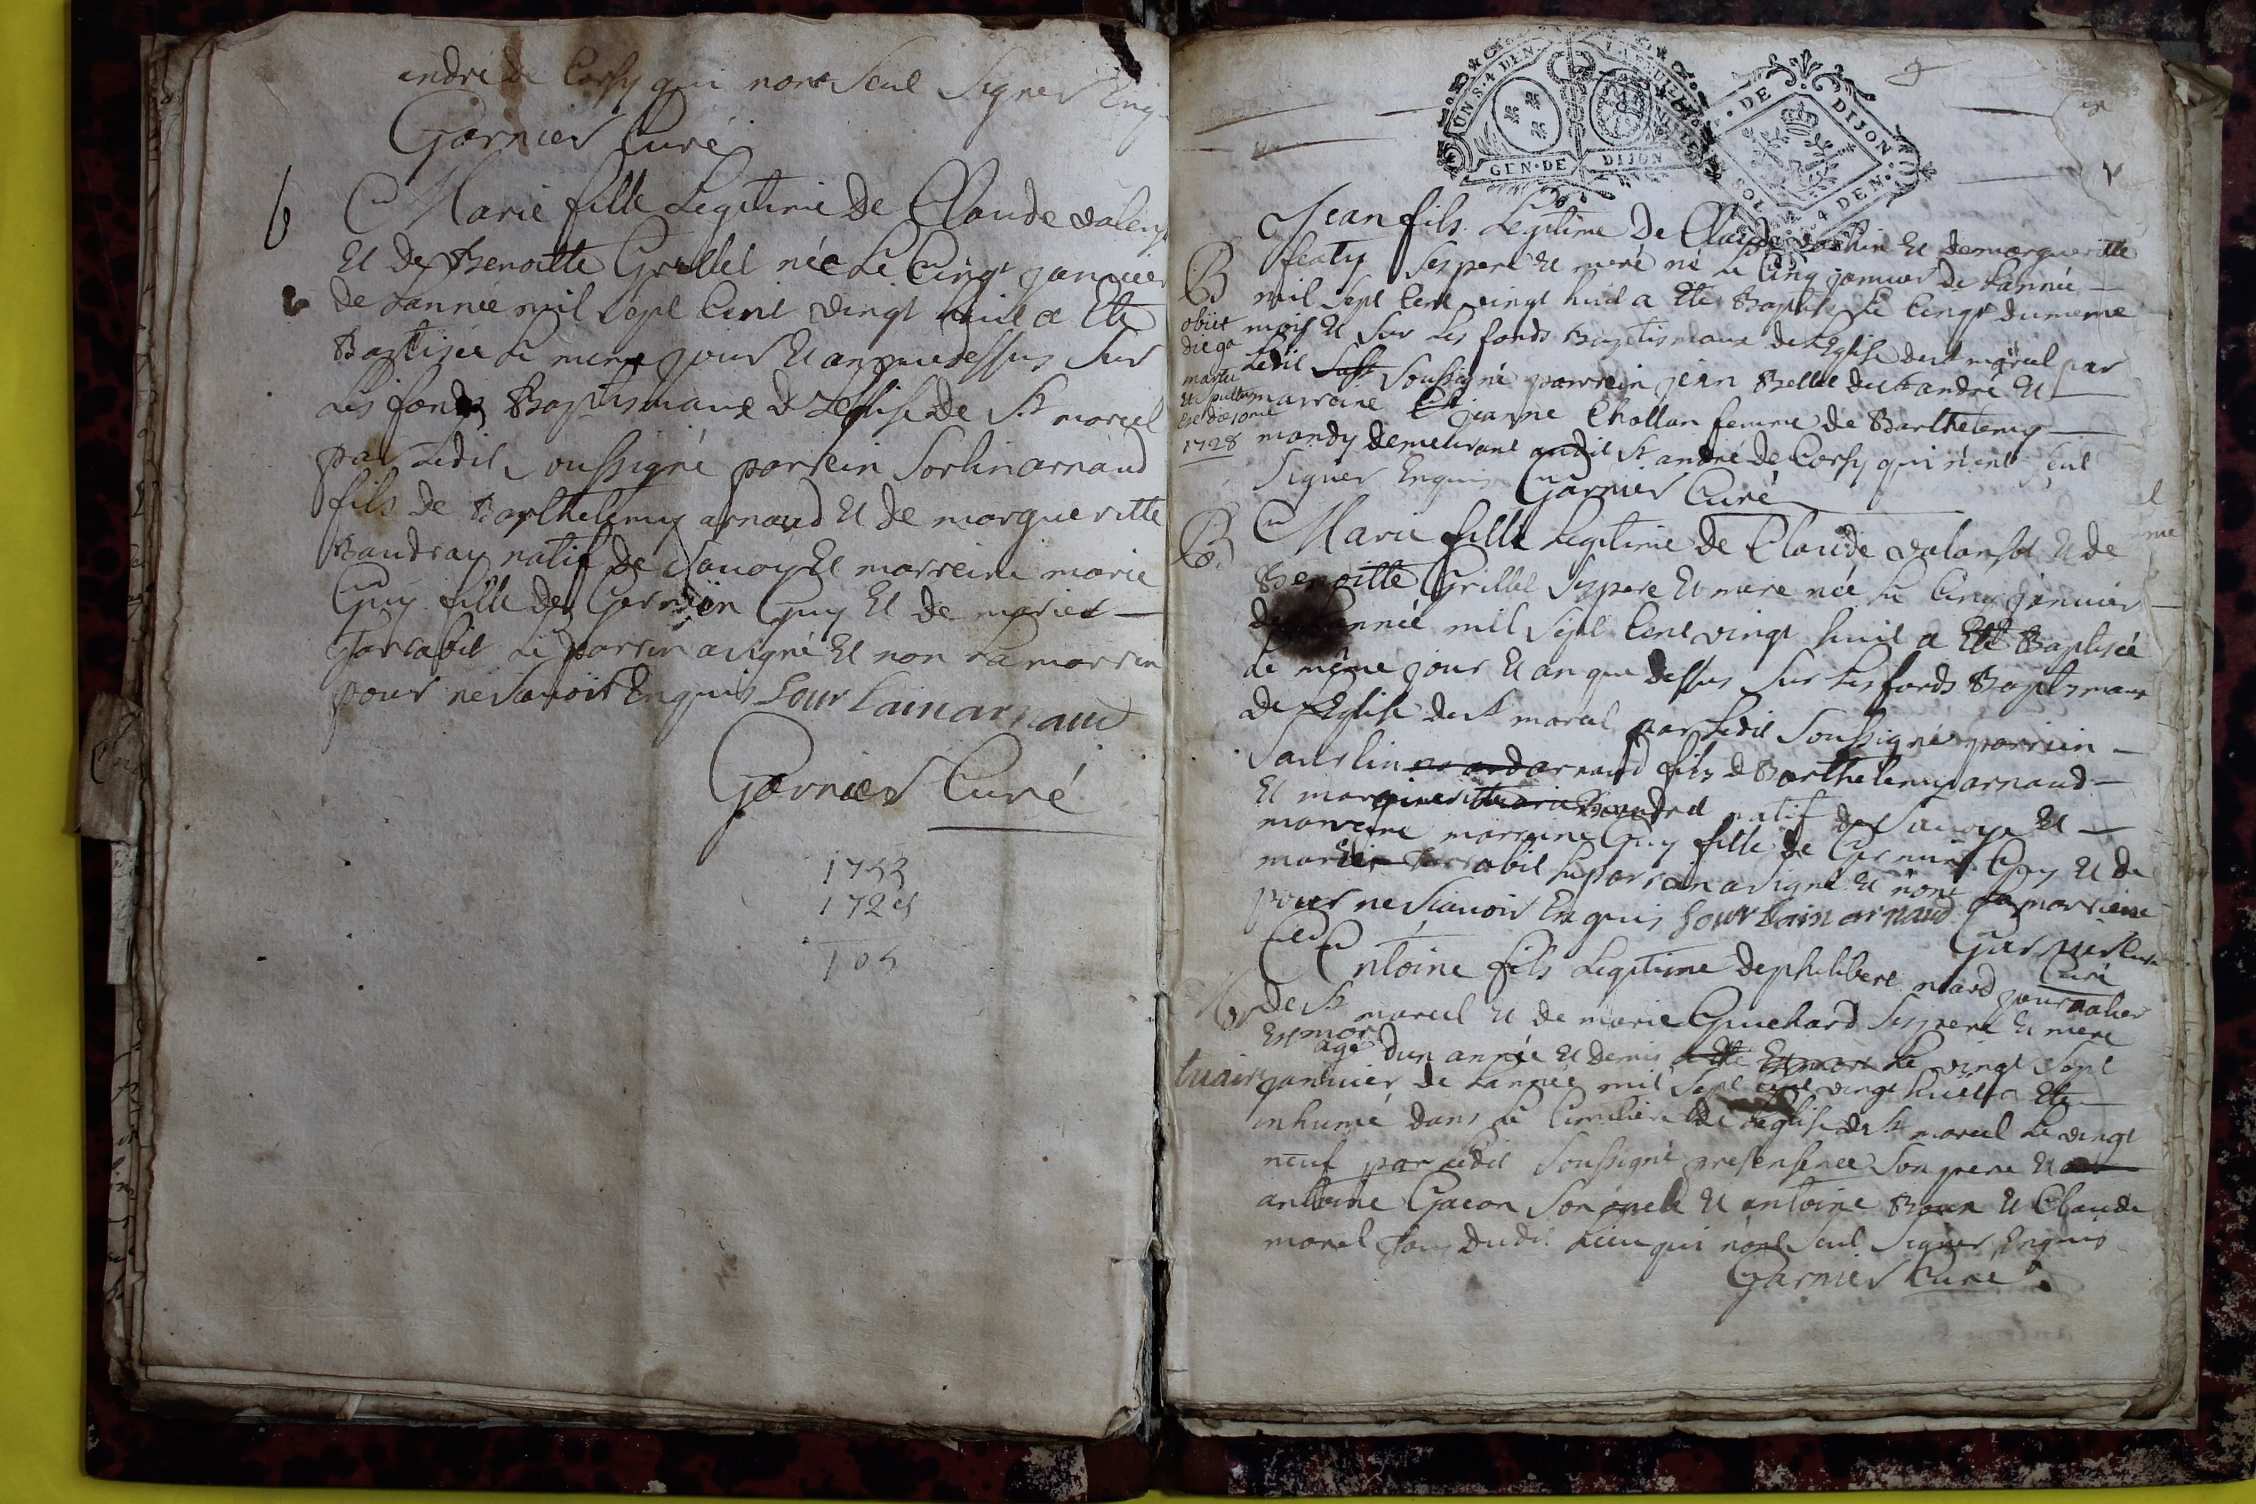 andré de Corsy qui nont Sceu Signer Enq
Garnier Curé
b
Marie fille Legitime De Claude valens
Et De Benoitte Grillet née Le Cinq janvier
de Lannée mil Sept Cent vingt huit a Eté
Baptisée Le meme jour Et an que dessus Sur
Les fonds Baptismaux d Leglise De St marcel
par Ledit Soussigné parrein Sorlin arnaud
fils de Barthelemy arnaud Et de margueritte
Baudray natif de Savoy Et marreine marie
Guy fille de Germain Guy Et de marie
Garrabit Le parrin a signé Et non La marrin
pour ne Savoir Enquis Sourlain arnaud
Garnier Curé
1733
1728
105
UN S 4 DEN
GEN DE DIJON
DE DIJON
SOL 4 DEN
Jean fils Legitime De Claude Et de margueritte
featy Ses pere Et mere né Le Cinq janvier de Lannée
B
mil Sept Cent vingt huit a Eté Baptisé Le Cinq du meme
obiit
mois Et Sur Les fonds Baptismaux de LEglise de St marcel par
die 9a
Ledit Soussigné parrein jean Bellet de St andré Et
martii
marraine jeanne Chollan femme de Barthelemy
1728
mandy demeurant audit St andré de Corsy qui n'ont Sceut
Signer Enquis Garnier Curé
B
Marie fille Legitime de Claude valansot Et de
Benoitte Grillet Ses pere Et mere née Le Cinq janvier
de Lannée mil Sept Cent vingt huit a Eté Baptisée
Le même jour Et an que dessus Sur Les fonds Baptismaux
De LEglise de St marcel par Ledit Soussigné parrein
Saurlin arnaud fils d Barthelemy arnaud
Et margueritte Baudret natif de Savoye Et
marreine marreine Guy fille de Germain Guy Et de
marie Garrabit Le parrain a signé Et non La marreine
pour ne Scavoir Enquis Sourlain arnaud
Garnier Curé
Curé
Antoine fils Legitime de philibert niard journalier
de St marcel Et de marie Guichard Ses pere Et mere
Mor
Est mor
agé dun année Et demis Le vingt Sept
tuaire
janvier de Lannée mil Sept cent vingt huit a Eté
inhumé dans Le Cimitiere de Leglise de St marcel Le vingt
neuf par Ledit Soussigné presensence Son pere Et
antoine Gacon Son oncle Et antoine Et Claude
morel tous dudit Lieu qui n'ont Sceut Signer Enquis
Garnier Curé